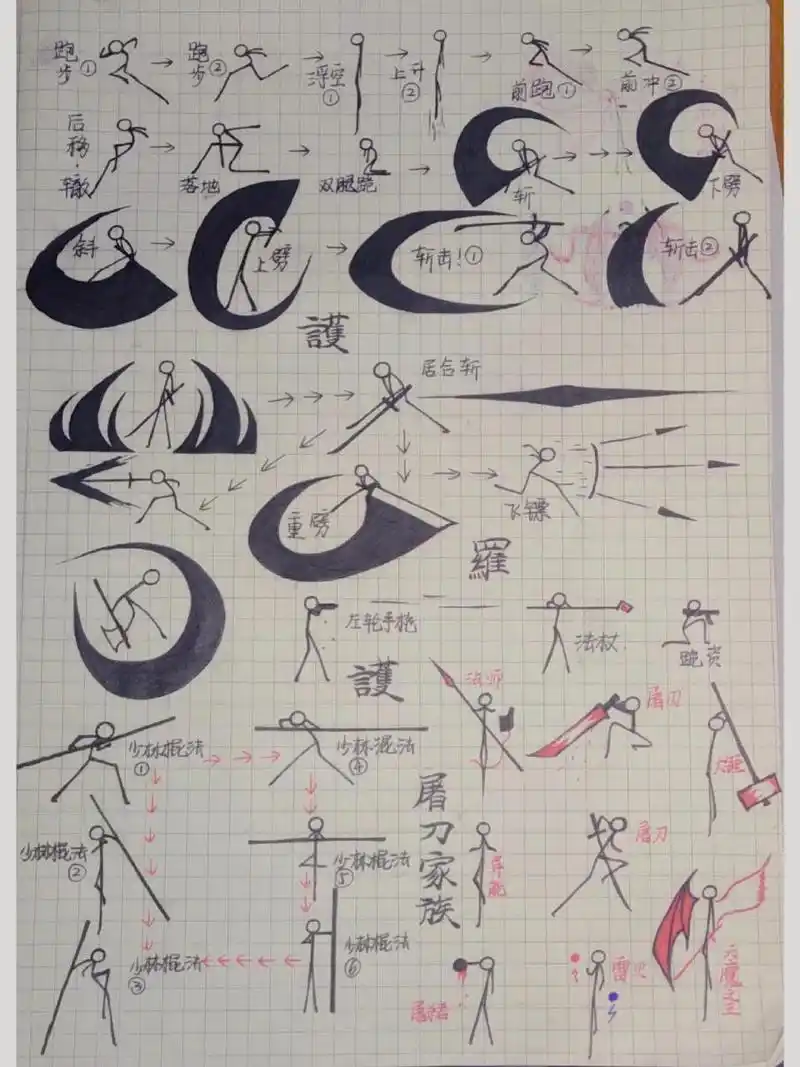 跑步① 跑步② 浮空① 上升② 前跑① 前冲②
后移·辙 落地 双腿跪 斩 下劈
斜 上劈 斩击!① 斩击②
護
居合斩
重劈 飞镖
羅
左轮手枪 法杖 跪姿
護
法师 屠刀
少林棍法① 少林混法④ 大锤
屠刀家族
少林棍法② 少林棍法⑤ 异能 屠刀
少林棍法③ 少林棍法⑥
雷火 天魔之王